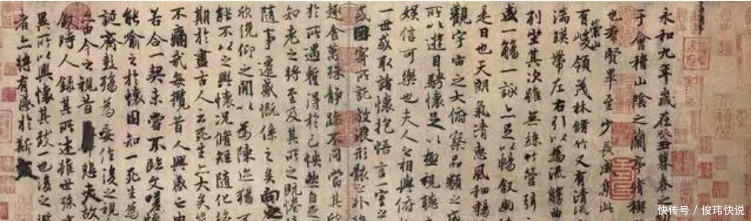 永和九年歲在癸丑暮春
于會稽山陰之蘭亭脩稧
也群賢畢至少長咸集此
有崇山峻領茂林脩竹又有清流
湍暎帶左右引以為流觴曲
列坐其次雖無絲竹管弦
盛一觴一詠亦足以暢敘幽
是日也天朗氣清惠風和暢
觀宇宙之大俯察品類之盛
所以遊目騁懷足以極視聽
娛信可樂也夫人之相與俯仰
一世或取諸懷抱悟言一室之
或因寄所託放浪形骸之外雖
趣舍萬殊靜躁不同當其欣
於所遇蹔得於己怏然自足
知老之將至及其所之既惓
隨事遷感慨係之矣向之
欣俛仰之閒以為陳迹猶不
能不以之興懷況脩短隨化終
期於盡古人云死生亦大矣豈
不痛哉每攬昔人興感之由
若合一契未嘗不臨文嗟悼
能喻之於懷固知一死生為
誕齊彭殤為妄作後之視
亦由今之視昔悲夫故
敘時人錄其所述雖世殊
異所以興懷其致一也後之攬
者亦將有感於斯文
快传号/俊玮快说